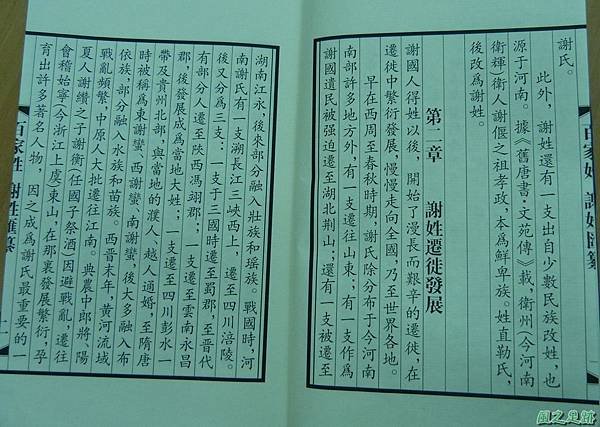 謝氏。
此外，謝姓還有一支出自少數民族改姓，也
源于河南。據《舊唐書·文苑傳》載，衛州（今河南
衛輝）衛人謝偃之祖孝政，本爲鮮卑族。姓直勒氏，
後改爲謝姓。
第二章 謝姓遷徙發展
謝國人得姓以後，開始了漫長而艱辛的遷徙，在
遷徙中繁衍發展，慢慢走向全國，乃至世界各地。
早在西周至春秋時期，謝氏除分布于今河南
南部許多地方外，有一支遷往山東；有一支作爲
謝國遺民被强迫遷至湖北荆山；還有一支被遷至
百家姓 謝姓匯纂
湖南江永，後來部分融入壯族和瑶族。戰國時，河
南謝氏有一支溯長江三峽西上，遷至四川涪陵。
後又分爲三支：一支于三國時遷至蜀郡，至晋代
有部分人遷至陝西馮翊郡；一支遷至雲南永昌
郡，後發展成爲當地大姓；一支遷至四川彭水一
帶及貴州北部，與當地的濮人、越人通婚，至隋唐
時被稱爲東謝蠻、西謝蠻、南謝蠻，後大多融入布
依族，部分融入水族和苗族。西晋末年，黄河流域
戰亂頻繁，中原人大批遷往江南。典農中郎將、陽
夏人謝纘之子謝衡（任國子祭酒）因避戰亂，遷往
會稽始寧（今浙江上虞）東山，在那裏發展繁衍，孕
育出許多著名人物，因之成爲謝氏最重要的一
百家姓 謝姓匯纂
風之足跡